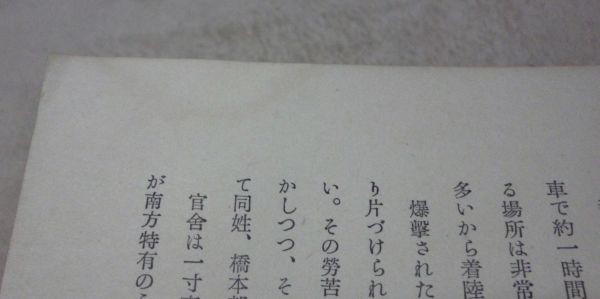 車で約一時間
る場所は非常
多いから着陸
爆撃された
り片づけられ
い。その勞苦
かしつつ、そ
て同姓、橋本
官舍は一寸
が南方特有の